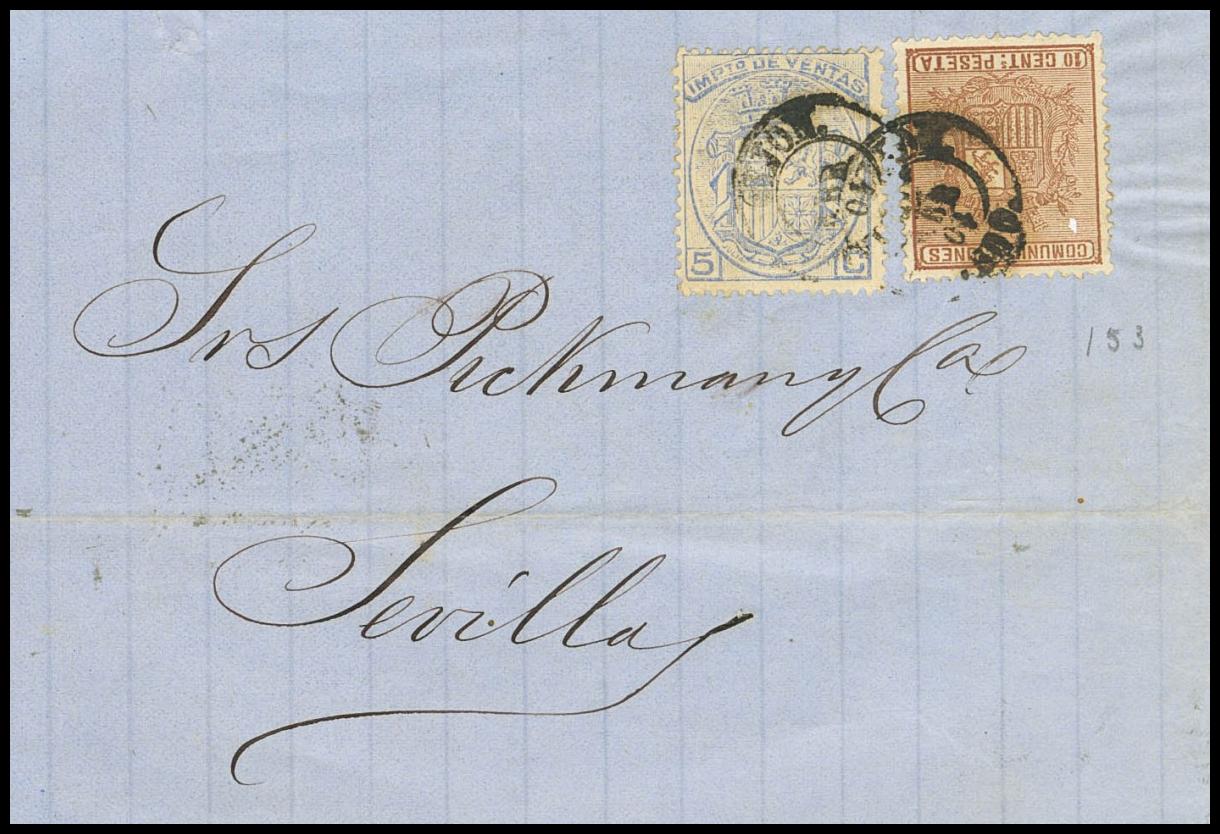 IMPTO DE VENTAS
5 C
10 CENTS PESETA
COMUNICACIONES
Srs Pickman y Ca
153
Sevilla